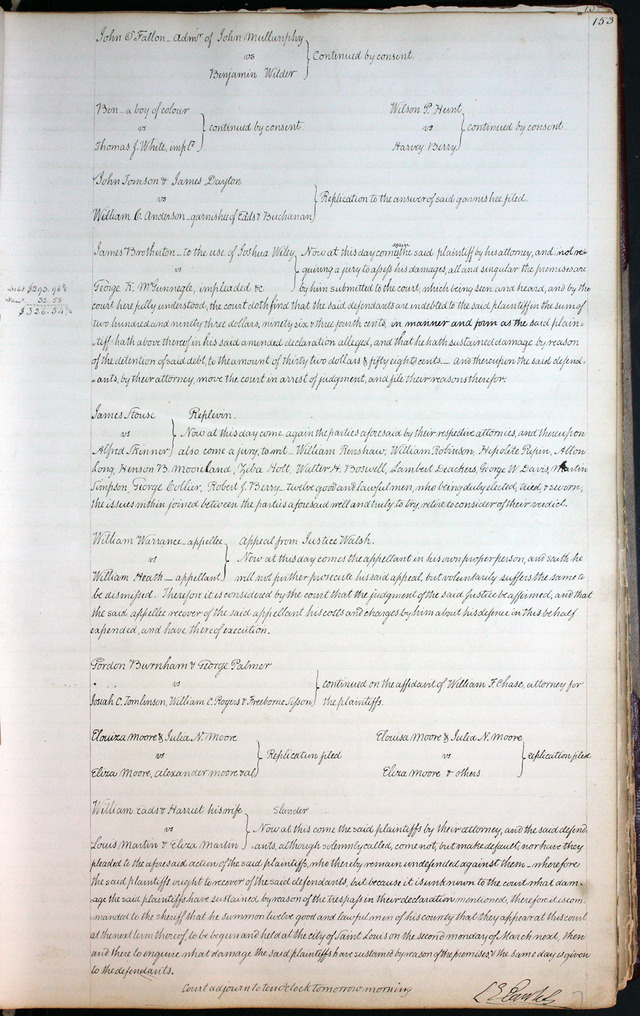 153
John O'Fallon – Admr. of John Mullanphy
vs } Continued by consent.
Benjamin Wilder
Ben – a boy of colour
vs } continued by consent
Thomas J. White, impld.
Wilson P. Hunt
vs } continued by consent.
Harvey Berry
John Tomson & James Dayton
vs } Replication to the answer of said garnishee filed.
William C. Anderson – garnishee of Eads & Buchanan
James Brotherton – to the use of Joshua Wiley } Now at this day comes again the said plaintiff by his attorney, and not re-
vs } quiring a jury to assess his damages, all and singular the premises are
George K. McGunnegle, impleaded &c } by him submitted to the court, which being seen and heard, and by the
Debt $293.96¾
32.58
$326.54¾
court here fully understood, the court doth find that the said defendants are indebted to the said plaintiff in the sum of
two hundred and ninety three dollars, ninety six & three fourth cents, in manner and form as the said plain-
tiff hath above thereof in his said amended declaration alleged, and that he hath sustained damage by reason
of the detention of said debt, to the amount of thirty two dollars & fifty eights cents. – And thereupon the said defend-
-ants, by their attorney, move the court in arrest of judgment, and file their reasons therefor.
James Rouse } Replevin.
vs } Now at this day come again the parties aforesaid by their respective attornies, and thereupon
Alfred Skinner } also come a jury, to wit – William Renshaw, William Robinson, Hepolite Papin, Allon
Long, Henson B. Mooreland, Ziba Holt, Walter H. Boswell, Lambert Deachers, George W Davis, Martin
Simpson, George Collier, Robert J. Berry – twelve good and lawful men, who being duly elected, tried, & sworn,
the issues within joined between the parties aforesaid well and truly to try, retire to consider of their verdict.
William Warrance – appellee } Appeal from Justice Walsh.
vs } Now at this day comes the appellant in his own proper person, and saith he
William Heath – appellant } will not further prosecute his said appeal, but voluntarily suffers the same to
be dismissed. Therefore it is considered by the court that the judgment of the said Justice be affirmed, and that
the said appellee recover of the said appellant his costs and charges by him about his defence in this behalf
expended, and have thereof execution.
Gordon Burnham & George Palmer
vs } continued on the affidavit of William F. Chase, attorney for
Josiah C. Tomlinson, William C. Rogers & Freeborne Sisson } the plaintiffs.
Elouiza Moore & Julia N. Moore
vs } Replication filed
Eliza Moore, Alexander Moore & al
Elouisa Moore & Julia N. Moore
vs } replication filed
Eliza Moore & others
William Eads & Harriet his wife } Slander
vs } Now at this come the said plaintiffs by their attorney, and the said defend-
Louis Martin & Eliza Martin } -ants, although solemnly called, come not, but make default, nor have they
pleaded to the aforesaid action of the said plaintiffs, who thereby remain undefended against them – wherefore
the said plaintiffs ought to recover of the said defendants, but because it is unknown to the court what dam-
age the said plaintiffs have sustained by reason of the trespass in their declaration mentioned, therefore it is com-
manded to the sheriff that he summon twelve good and lawful men of his county that they appear at this court
at the next term thereof, to be begun and held at the city of Saint Louis on the second monday of March next, then
and there to enquire what damage the said plaintiffs have sustained by reason of the premises, & the same day is given
to the defendants.
Court adjourn to ten o'clock tomorrow morning